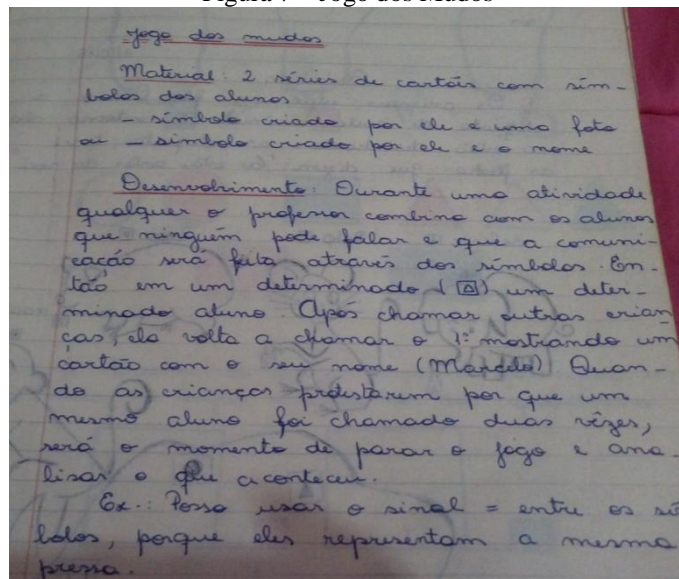 Jogo dos mudos
Material: 2 séries de cartões com sím-
bolos dos alunos
– símbolo criado por ele e uma foto
ou – símbolo criado por ele e o nome
Desenvolvimento: Durante uma atividade
qualquer o professor combina com os alunos
que ninguém pode falar e que a comuni-
cação será feita através dos símbolos. En-
tão em um determinado ( ) um deter-
minado aluno. Após chamar outras crian
ças, ela volta a chamar o 1º mostrando um
cartão com o seu nome (Marcelo) Quan-
do as crianças protestarem por que um
mesmo aluno foi chamado duas vêzes,
será o momento de parar o jogo e ana-
lisar o que aconteceu.
Ex.: Posso usar o sinal = entre os sí
bolos, porque eles representam a mesma
pressa.